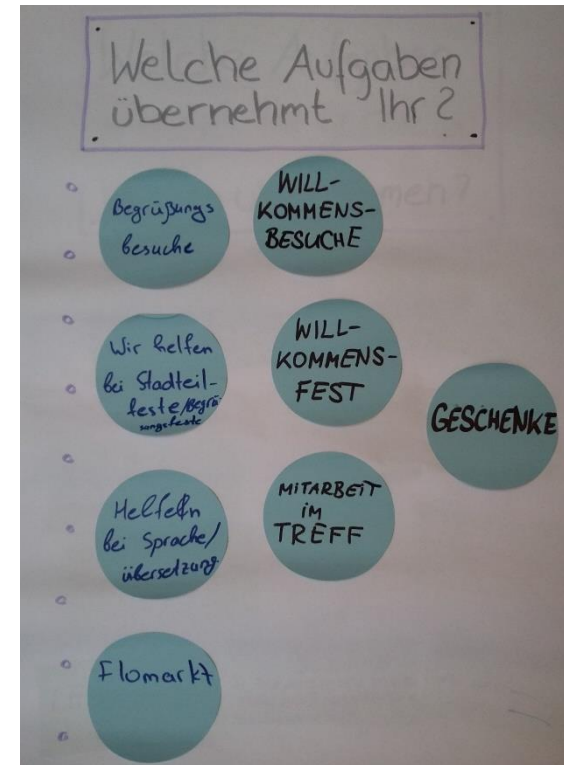 Welche Aufgaben
übernehmt Ihr?
Begrüßungs
besuche
WILL-
KOMMENS-
BESUCHE
Wir helfen
bei Stadteil-
feste/Begrü
sungsfeste
WILL-
KOMMENS-
FEST
GESCHENKE
Helfeln
bei Sprache/
übersetzung
MITARBEIT
im
TREFF
Flomarkt